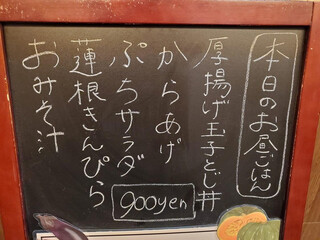 本日のお昼ごはん
厚揚げ玉子とじ丼
からあげ
ぷちサラダ
蓮根きんぴら
おみそ汁
900yen